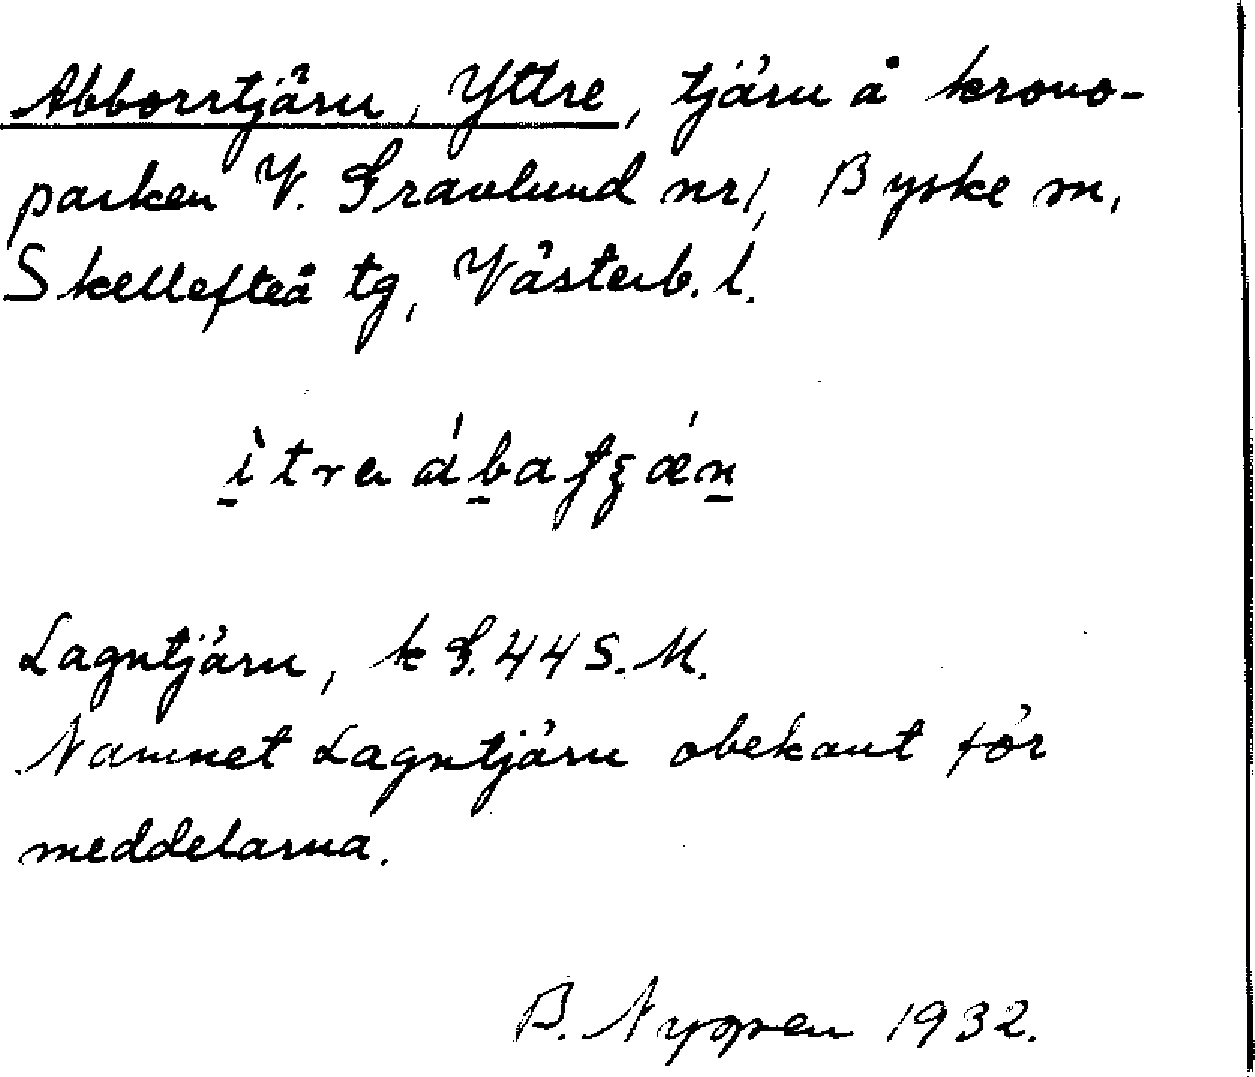 Abborrtjärn, Yttre, tjärn å krono-
parken V. Granlund nr 1, Byske sn,
Skellefteå tg, Västerb. l.
Lagntjärn, k G. 44 S.M.
Namnet Lagntjärn obekant för
meddelarna.
B. Nygren 1932.